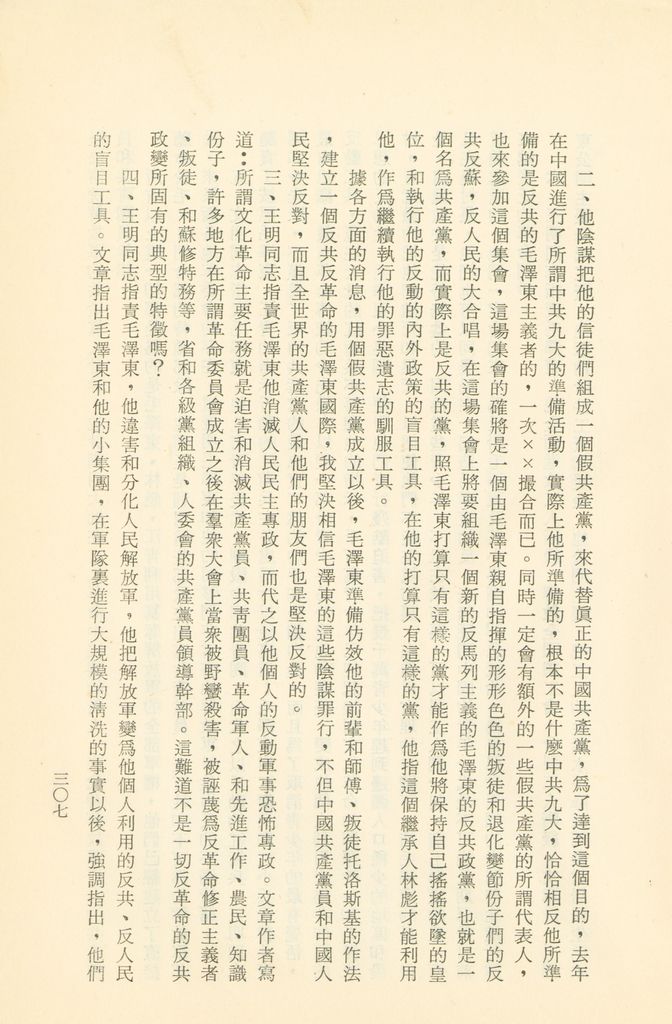 二、他陰謀把他的信徒們組成一個假共產黨，來代替眞正的中國共產黨，爲了達到這個目的，去年
在中國進行了所謂中共九大的準備活動，實際上他所準備的，根本不是什麼中共九大，恰恰相反他所準
備的是反共的毛澤東主義者的，一次××撮合而已。同時一定會有額外的一些假共產黨的所謂代表人，
也來參加這個集會，這場集會的確將是一個由毛澤東親自指揮的形形色色的叛徒和退化變節份子們的反
共反蘇，反人民的大合唱，在這場集會上將要組織一個新的反馬列主義的毛澤東的反共政黨，也就是一
個名爲共產黨，而實際上是反共的黨，照毛澤東打算只有這樣的黨才能作爲他將保持自己搖搖欲墜的皇
位，和執行他的反動的內外政策的盲目工具，在他的打算只有這樣的黨，他指這個繼承人林彪才能利用
他，作爲繼續執行他的罪惡遺志的馴服工具。
據各方面的消息，用個假共產黨成立以後，毛澤東準備仿效他的前輩和師傅、叛徒托洛斯基的作法
，建立一個反共反革命的毛澤東國際，我堅決相信毛澤東的這些陰謀罪行，不但中國共產黨員和中國人
民堅決反對，而且全世界的共產黨人和他們的朋友們也是堅決反對的。
三、王明同志指責毛澤東他消滅人民民主專政，而代之以他個人的反動軍事恐怖專政。文章作者寫
道：所謂文化革命主要任務就是迫害和消滅共產黨員、共靑團員、革命軍人、和先進工作、農民、知識
份子，許多地方在所謂革命委員會成立之後在羣衆大會上當衆被野蠻殺害，被誣蔑爲反革命修正主義者
、叛徒、和蘇修特務等，省和各級黨組織、人委會的共產黨員領導幹部。這難道不是一切反革命的反共
政變所固有的典型的特徵嗎？
四、王明同志指責毛澤東，他違害和分化人民解放軍，他把解放軍變爲他個人利用的反共、反人民
的盲目工具。文章指出毛澤東和他的小集團，在軍隊裏進行大規模的淸洗的事實以後，強調指出，他們
三〇七